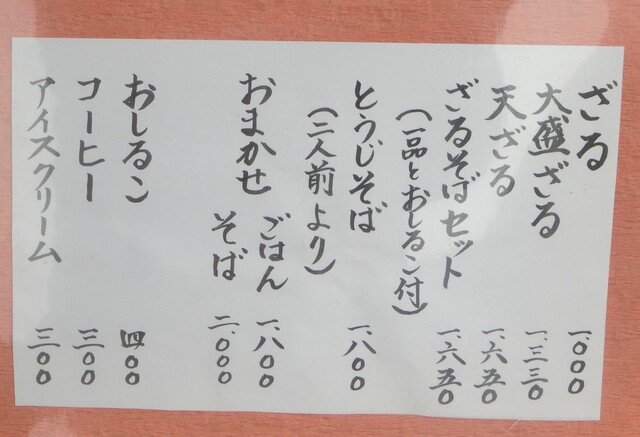 ざる 一、〇〇〇
大盛ざる 一、三三〇
天ざる 一、六五〇
ざるそばセット 一、六五〇
(一品とおしるこ付)
とうじそば 一、八〇〇
(二人前より)
おまかせ ごはん 一、八〇〇
そば 二、〇〇〇
おしるこ 四〇〇
コーヒー 三〇〇
アイスクリーム 三〇〇